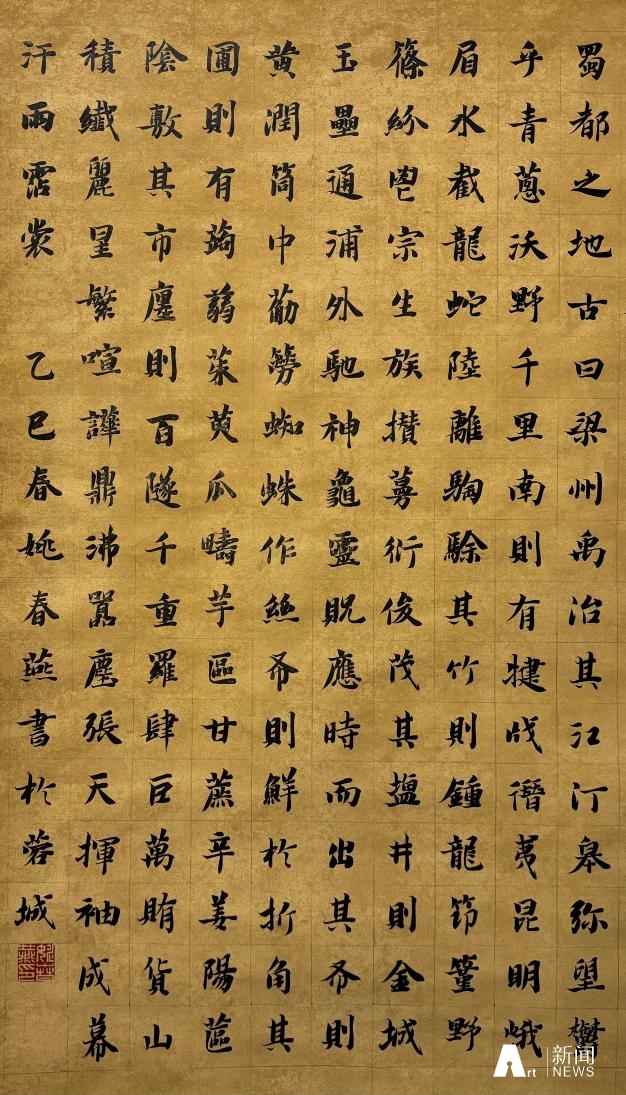 蜀都之地古曰梁州禹治其江汀皋弥望鬱
乎青蔥沃野千里南則有犍戕僭夷昆明峨
眉水截龍蛇陸離騊駼其竹則鍾龍篁野
篠紛鬯宗生族攢衍俊茂其鹽井則金城
玉壘通浦外馳神龜靈貺應時而出其布則
黃潤筒中蜘蛛作絲布則鮮於折角其
圃則有蒟蒻茱萸瓜疇芋區甘蔗辛姜陽蓲
陰敷其市廛則百隧千重羅肆巨萬賄貨山
積纖麗星繁喧譁鼎沸囂塵張天揮袖成幕
汗雨霑裳 乙巳春姚春燕書於蓉城
Art 新闻 NEWS